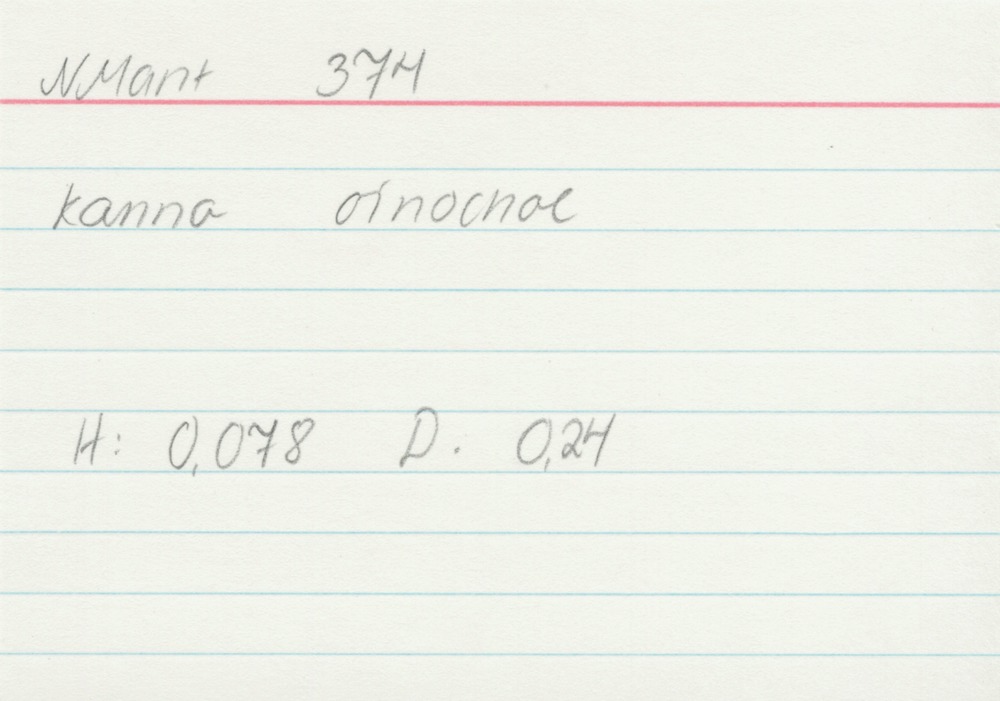 NMant 374
kanna oinochoe
H: 0,078 D. 0,24